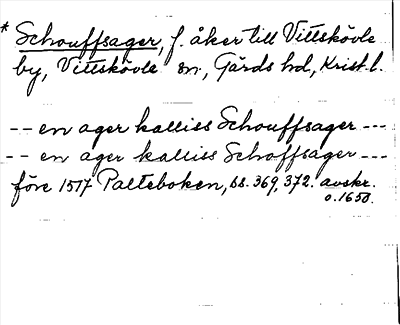 * Schouffsager, f. åker till Vittskövle
by, Vittskövle sn, Gärds hd, Krist. l.
-- en ager kalliss Schouffsager ---
-- en ager kalliss Schoffsager ---
före 1517 Palteboken, ss. 369, 372. avskr.
o. 1650.